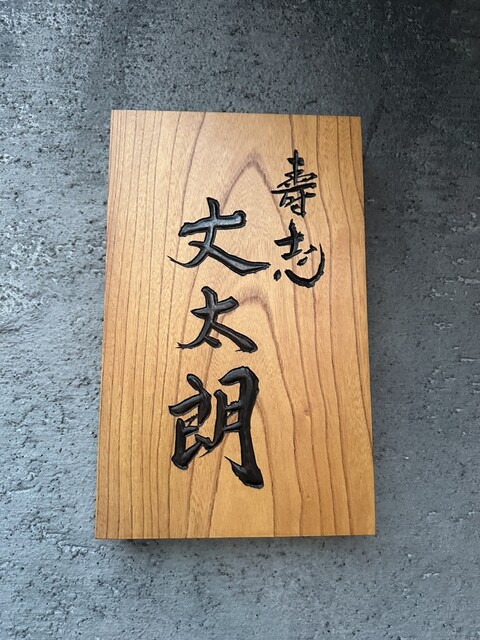 壽志
丈太朗